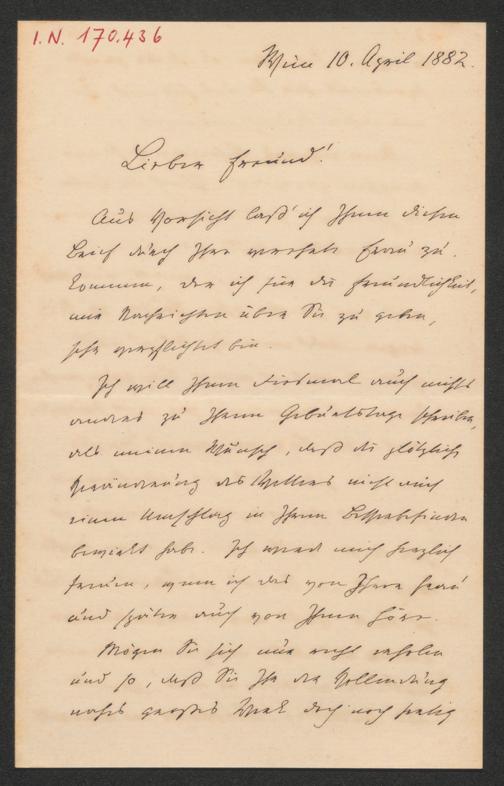 I.N. 170.436
Wien 10. April 1882.
Lieber Freund!
Aus Vorsicht laß' ich Ihnen diesen
Brief durch Ihre verehrte Frau zu-
kommen, der ich für die Freundlichkeit,
mir Nachrichten über Sie zu geben,
sehr verpflichtet bin.
Ich will Ihnen diesmal auch nichts
anderes zu Ihrem Geburtstage schreiben,
als meinen Wunsch, daß die plötzliche
Veränderung des Wetters nicht auch
einen Umschlag in Ihrem Besserbefinden
bewirkt habe. Ich werde mich herzlich
freuen, wenn ich das von Ihrer Frau
und später auch von Ihnen höre.
Mögen Sie sich nur recht erholen
und so, daß Sie Ihr der Vollendung
nahes großes Werk doch noch